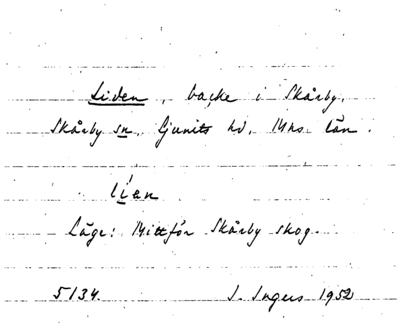 Liden, backe i Skårby,
Skårby sn, Ljunits hd, Mhs. län.
líen
Läge: Mittför Skårby skog.
5134. I. Ingers 1952